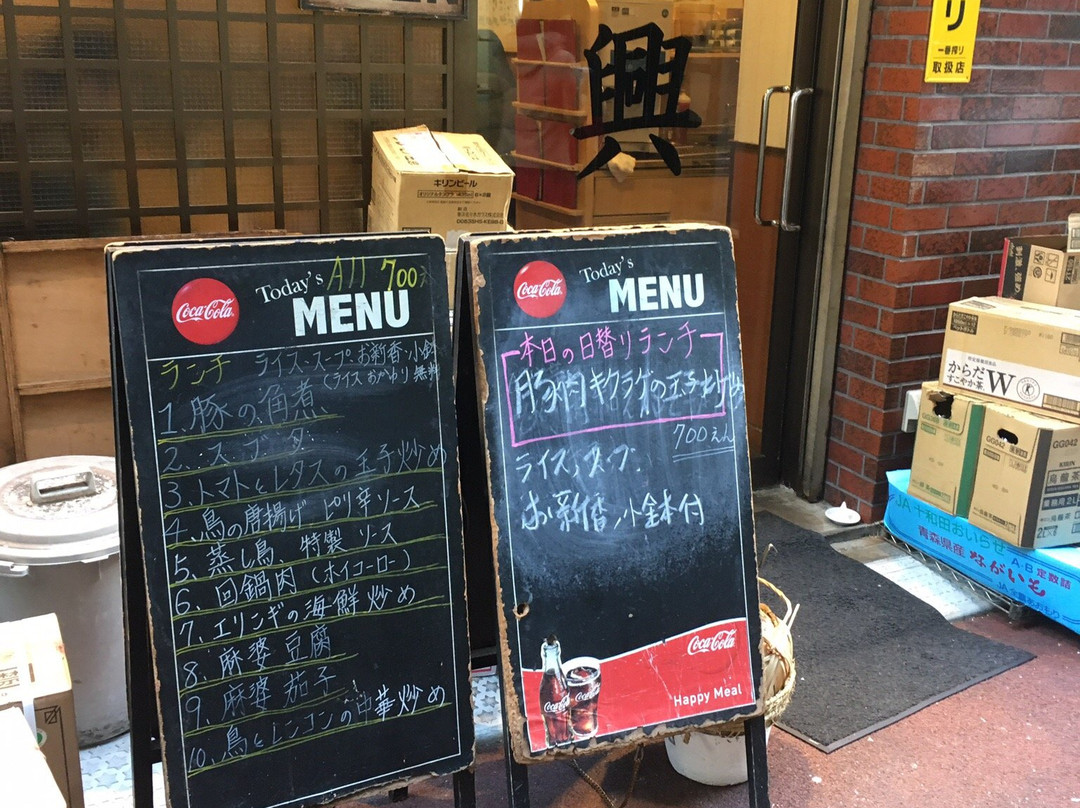 興
リ
一番搾り
取扱店
キリンビール
Coca-Cola
Today's All 700え
MENU
ランチ ライス、スープ、お新香、小鉢
(ライスおかわり無料
1. 豚の角煮
3、トマトとレタスの玉子炒め
4、鳥の唐揚げ ピリ辛ソース
5、蒸し鳥 特製ソース
6、回鍋肉(ホイコーロー)
7、エリンギの海鮮炒め
8、麻婆豆腐
9、麻婆茄子
10、鳥とレンコンの中華炒め
Coca-Cola
Today's
MENU
本日の日替りランチ
豚肉キクラゲの玉子炒め
700えん
ライス、スープ、
お新香、小鉢付
Coca-Cola
Coca-Cola
Happy Meal
からだ
すこやか茶W
GG042
烏龍茶
JA十和田おいらせ
青森県産
ながいも
A・B 定数詰